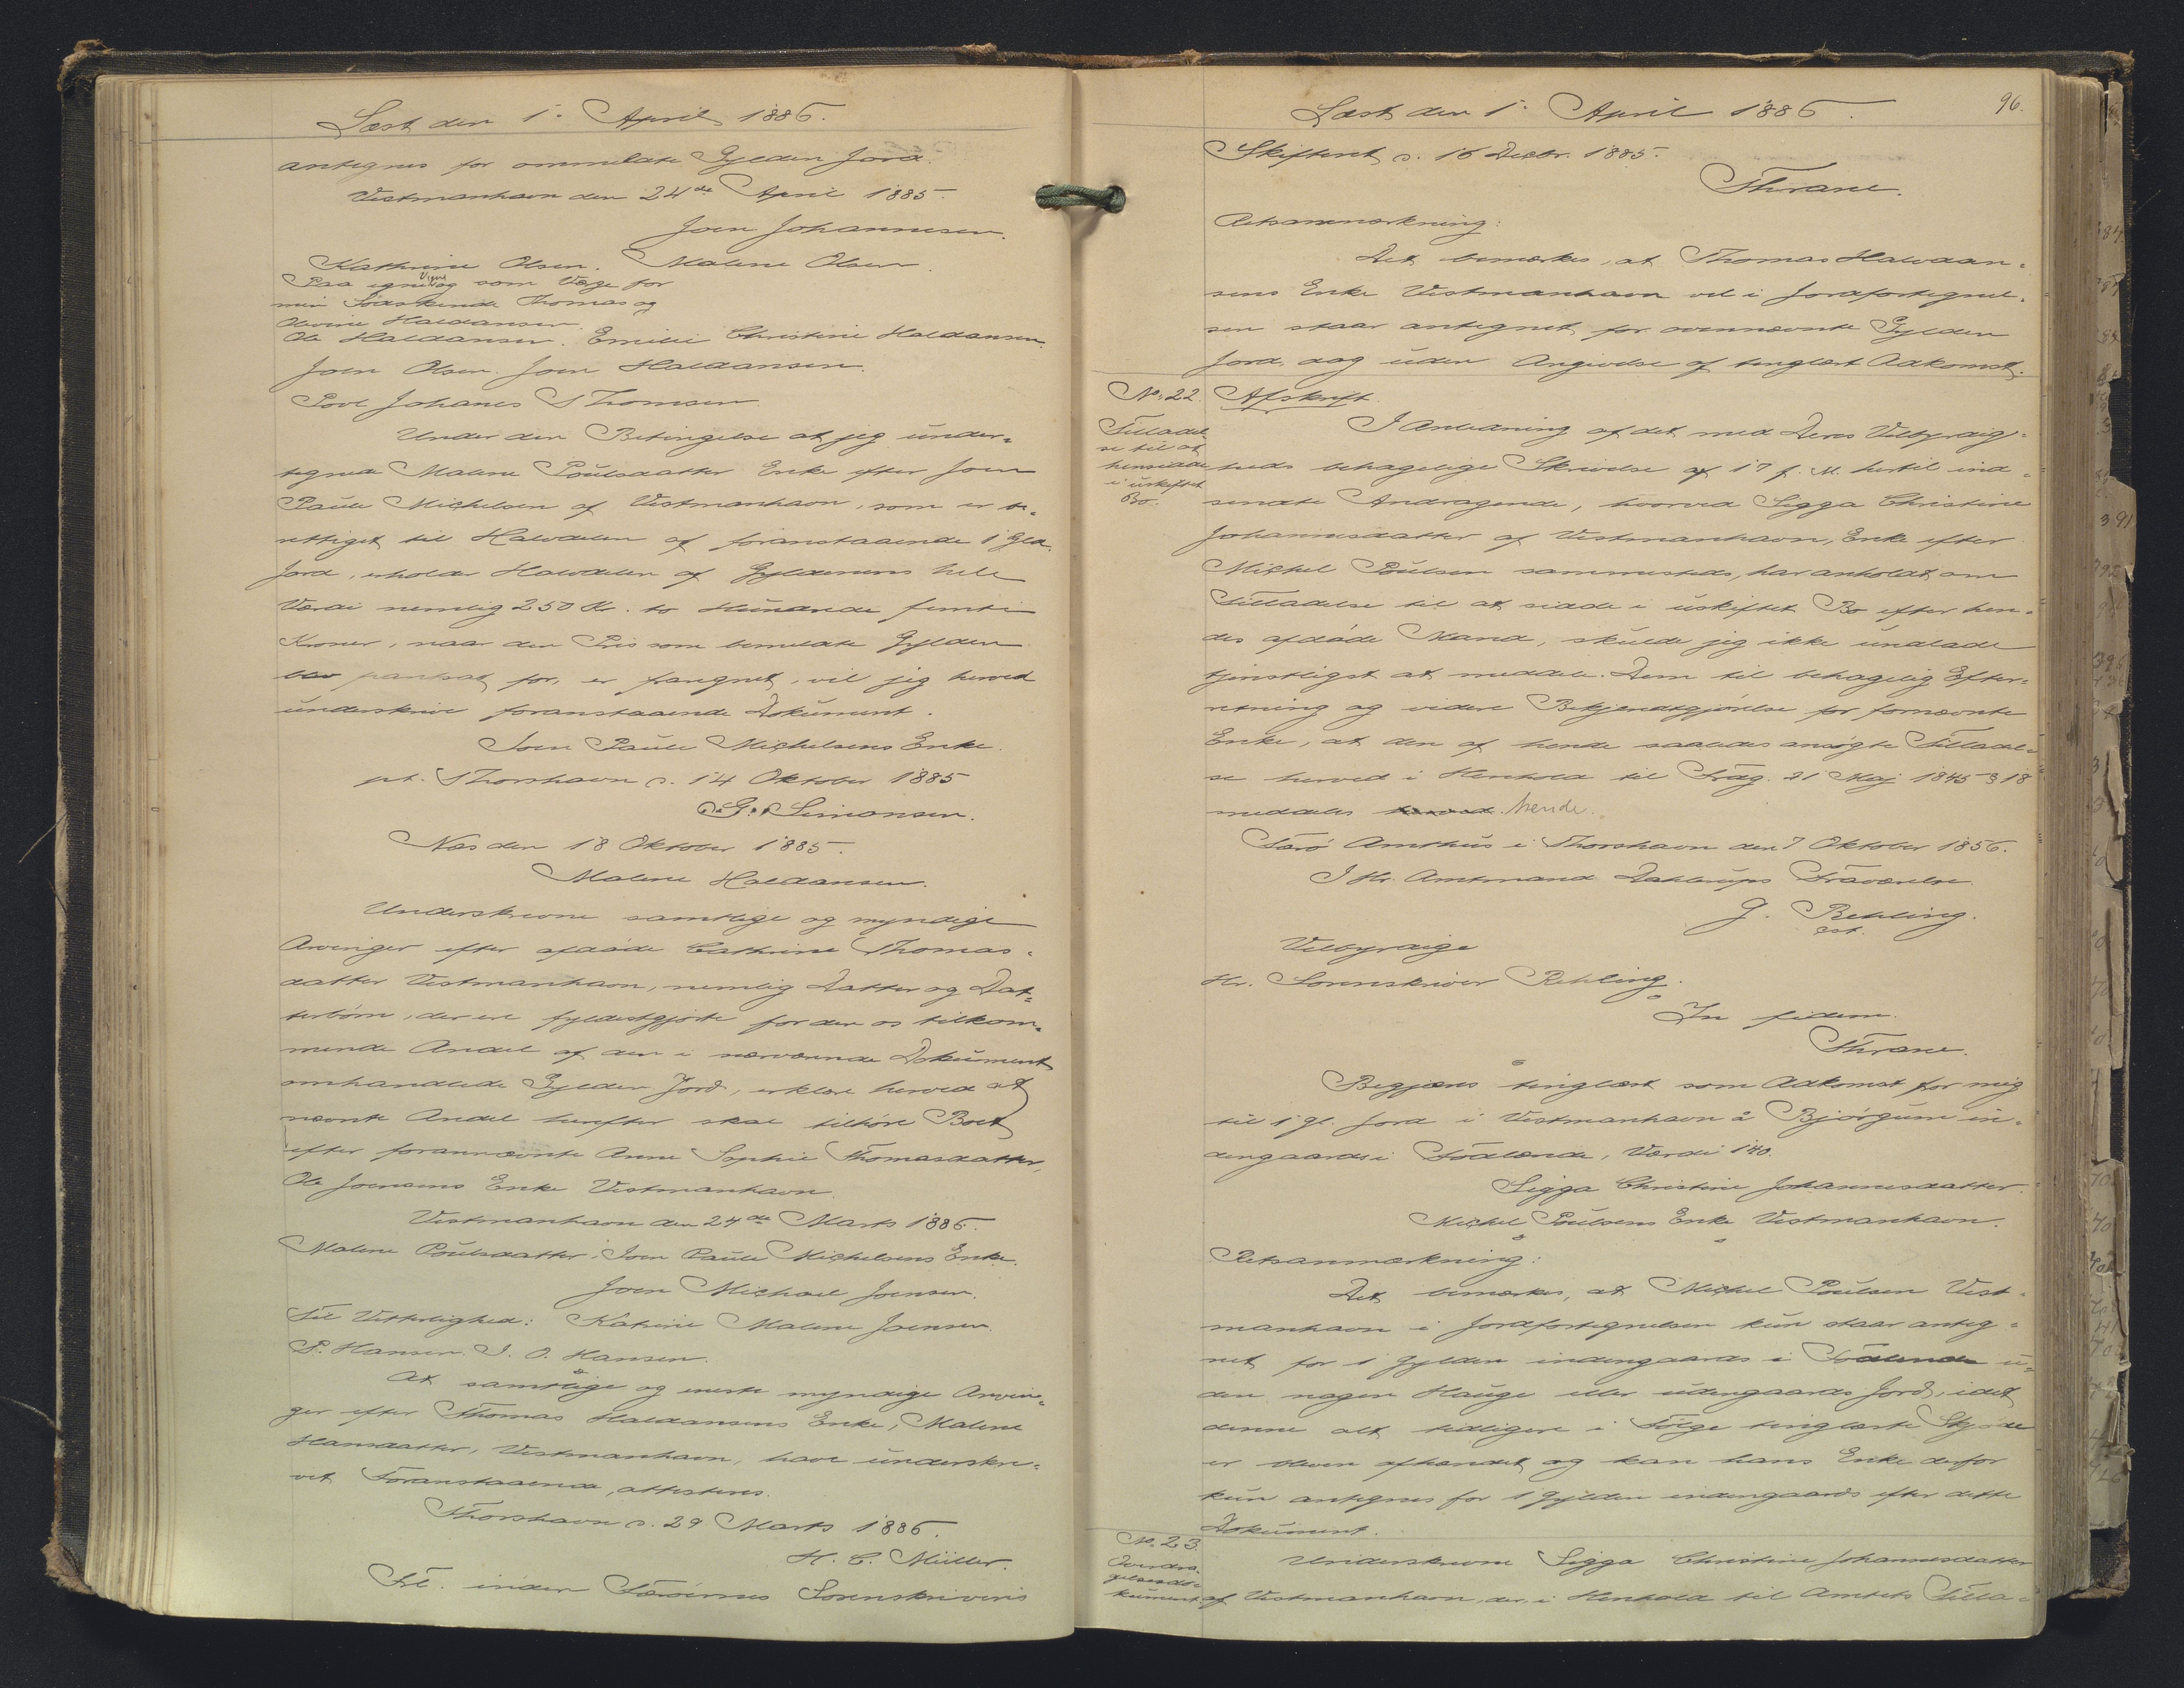 Læst den 1. April 1886.
antegnes for ommeldte Gylden Jord.
Vestmanhavn den 24de April 1885.
Joen Johannesen.
Kathrine Olsen. Malene Olsen.
Paa egne Vegne og som Værge for
min Södskende Thomas og
Olevine Haldansen.
Ole Haldansen. Emilie Christine Haldansen.
Joen Olsen. Joen Haldansen.
Povl Johanes Thomsen.
Under den Betingelse at jeg under=
tegnede Malene Poulsdatter Enke efter Joen
Paule Michelsen af Vestmanhavn, som er be=
rettiget til Halvdelen af foranstaaende 1 Gld.
Jord, erholder Halvdelen af Gyldenens hele
Værdi nemlig 250 Kr. to Hundrede femti
Kroner, naar den Pris som bemeldte Gylden
blev pantsat for, er fraregnet, vil jeg herved
underskrive foranstaaende Dokument.
Joen Paule Michelsens Enke.
pt. Thorshavn d. 14 Oktober 1885
G. Simonsen.
Næs den 18 Oktober 1885.
Malene Haldansen.
Underskrevne samtlige og myndige
Arvinger efter afdöde Cathrine Thomas=
datter Vestmanhavn, nemlig Datter og Dat=
terbörn, der ere fyldestgjorte for den os tilkom=
mende Andel af den i nærværende Dokument
omhandlede Gylden Jord, erklære herved at
nævnte Andel herefter skal tilhöre Boet
efter forannævnte Anne Sophie Thomasdatter,
Ole Joensens Enke Vestmanhavn.
Vestmanhavn den 24de Marts 1886.
Malene Poulsdatter. Joen Paule Michelsens Enke.
Joen Michael Joensen.
Til Vitterlighed: Katrine Malene Joensen.
P. Hansen. J. O. Hansen.
At samtlige og eneste myndige Arvin=
ger efter Thomas Haldansens Enke, Malene
Hansdatter, Vestmanhavn, have underskre=
vet Foranstaaende, attesteres.
Thorshavn d. 29 Marts 1886.
H. C. Müller.
Frl. inden Færöernes Sorenskriveris
Læst den 1. April 1886.
96.
Skifteret d. 16 Decbr. 1885.
Thrane.
Retsanmærkning:
Det bemærkes, at Thomas Halvdan=
sens Enke Vestmanhavn vel i Jordfortegnel=
sen staar antegnet for ovennævnte Gylden
Jord, dog uden Angivelse af tinglæst Adkomst.
No. 22. Afskrift.
Tilladel
se til at
hensidde
i uskiftet
Bo.
I Anledning af det med Deres Velbyrdig=
heds behagelige Skrivelse af 17 f. M. hertil ind=
sendte Andragende, hvorved Sigga Christine
Johannesdatter af Vestmanhavn, Enke efter
Michel Poulsen sammesteds, har anholdt om
Tilladelse til at sidde i uskiftet Bo efter hen=
des afdöde Mand, skulde jeg ikke undlade
tjenstligst at meddele Dem til behagelig Efter=
retning og videre Bekjendtgjörelse for fornævnte
Enke, at den af hende saaledes ansögte Tilladel=
se herved i Henhold til Frdg. 21 Maj 1845 § 18
meddeles hende.
Færö Amthus i Thorshavn den 7 Oktober 1856.
I Hr. Amtmand Dahlerups Fraværelse
G. Rehling.
cst.
Velbyrdige
Hr. Sorenskriver Rehling.
In fidem.
Thrane.
Begjæres tinglæst som Adkomst for mig
til 1 gl. Jord i Vestmanhavn å Bjórgum in=
dengaards i Födlende, Værdi 140.
Sigga Christine Johannesdatter.
Michel Poulsens Enke Vestmanhavn.
Retsanmærkning:
Det bemærkes, at Michel Poulsen Vest=
manhavn i Jordfortegnelsen kun staar anteg=
net for 1 Gylden indengaards i Födlende u=
den nogen Hauge eller udengaards Jord, idet
denne alt tidligere i Fölge tinglæste Skjöde
er bleven afhændet og kan hans Enke derfor
kun antegnes for 1 Gylden indengaards efter dette
Dokument.
No. 23.
Overdra=
gelsesdo=
kument
Underskrevne Sigga Christine Johannesdatter
af Vestmanhavn, der i Henhold til Amtets Tilla=